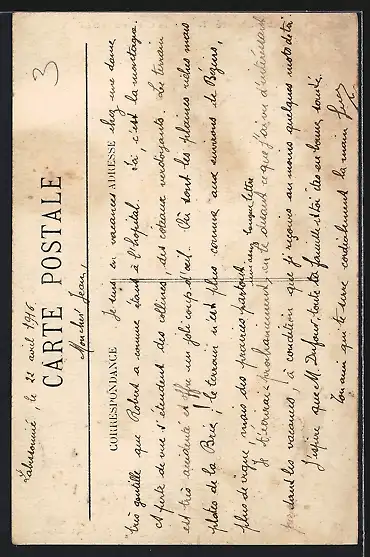 3
Labessonnié, le 22 avril 1916
CARTE POSTALE
Mon cher Jean,
CORRESPONDANCE
ADRESSE
Je suis en vacances chez une dame
très gentille que Robert a connue étant à l'hôpital. Ici, c'est la montagne.
A perte de vue s'étendent des collines, des côteaux verdoyants. Le terrain
est très accidenté et offre un joli coup d'œil. Où sont les plaines riches mais
plates de la Brie! le terrain n'est plus comme aux environs de Béziers,
plus de vigne mais des prairies partout.
Je t'écrirai prochainement une assez longue lettre en te disant ce que j'ai vu d'intéressant
pendant les vacances, à condition que je reçoive au moins quelques mots de toi.
J'espère que M. Dufour, toute ta famille et toi êtes en bonne santé.
Ton ami qui te serre cordialement la main